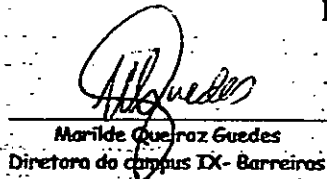 Guedes
Marilde Queiroz Guedes
Diretora do campus IX- Barreiras